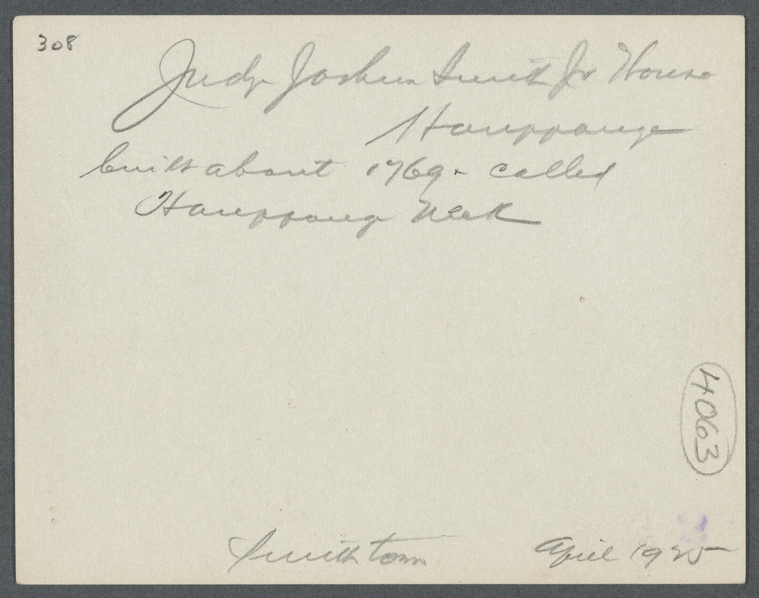 308
Judge Joshua Smith Jr House
Hauppauge
built about 1769 - called
Hauppauge Neck
4063
Smithtown April 1925